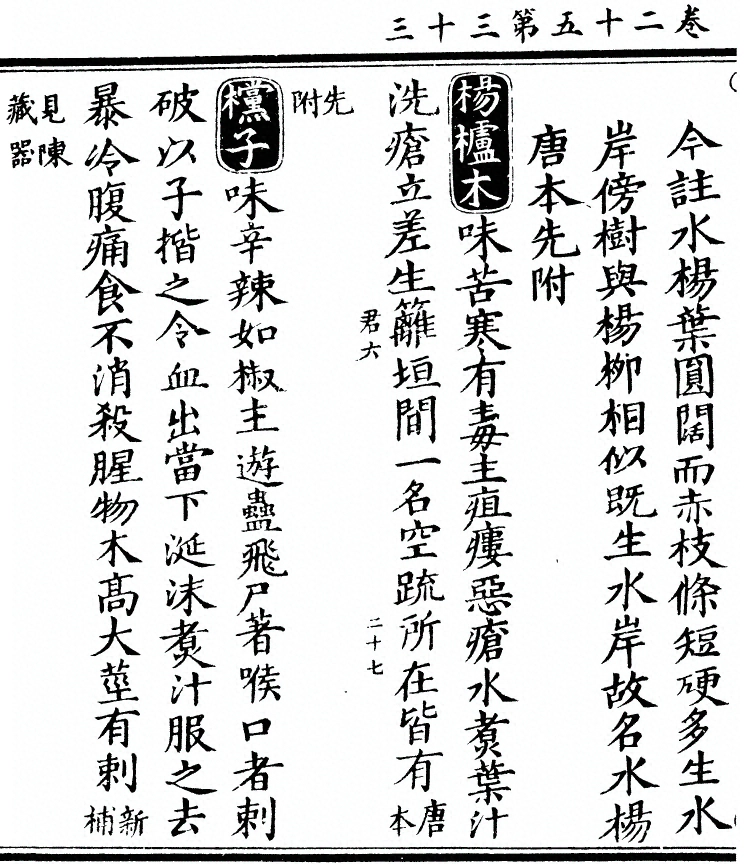 卷二十五第三十三
今註水楊葉圓闊而赤枝條短硬多生水
岸傍樹與楊柳相似既生水岸故名水楊
唐本先附
楊櫨木味苦寒有毒主疽瘻惡瘡水煑葉汁
洗瘡立差生籬垣間一名空疏所在皆有唐本
君六 二十七
先附
欓子味辛辣如椒主遊蠱飛尸著喉口者刺
破以子揩之令血出當下涎沫煑汁服之去
暴冷腹痛食不消殺腥物木髙大莖有刺新補
見陳藏器